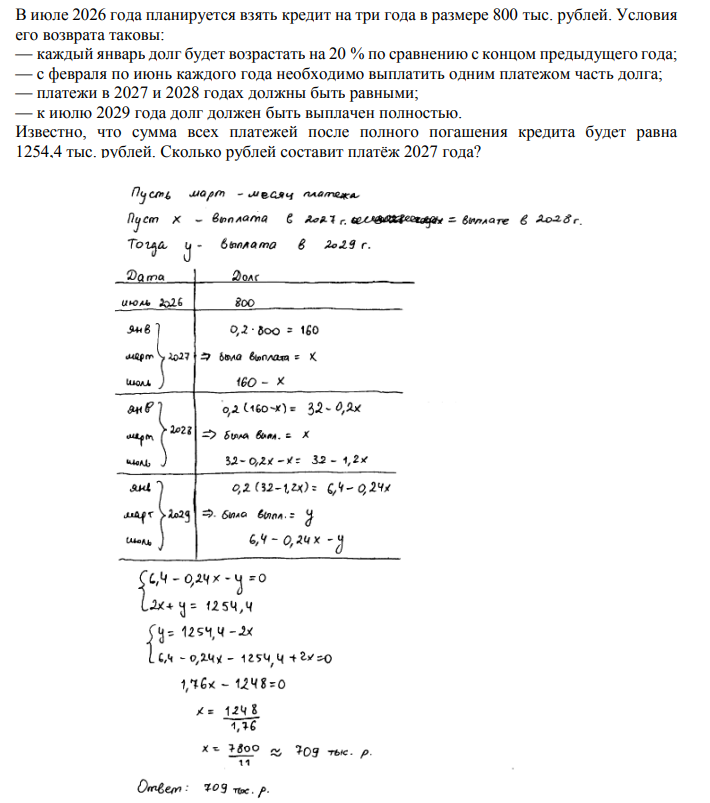 В июле 2026 года планируется взять кредит на три года в размере 800 тыс. рублей. Условия
его возврата таковы:
— каждый январь долг будет возрастать на 20 % по сравнению с концом предыдущего года;
— с февраля по июнь каждого года необходимо выплатить одним платежом часть долга;
— платежи в 2027 и 2028 годах должны быть равными;
— к июлю 2029 года долг должен быть выплачен полностью.
Известно, что сумма всех платежей после полного погашения кредита будет равна
1254,4 тыс. рублей. Сколько рублей составит платёж 2027 года?
Пусть март - месяц платежа
Пуст х - выплата в 2027 г. = выплате в 2028 г.
Тогда у - выплата в 2029 г.
Дата Долг
июль 2026 800
янв 0,2·800 = 160
март 2027 ⇒ была выплата = х
июль 160 - х
янв 0,2(160-х) = 32-0,2х
март 2028 ⇒ была выпл. = х
июль 32-0,2х-х = 32-1,2х
янв 0,2(32-1,2х) = 6,4-0,24х
март 2029 ⇒ была выпл. = у
июль 6,4-0,24х-у
6,4-0,24х-у=0
2х+у=1254,4
у=1254,4-2х
6,4-0,24х-1254,4+2х=0
1,76х-1248=0
х = 1248/1,76
х = 7800/11 ≈ 709 тыс. р.
Ответ: 709 тыс. р.